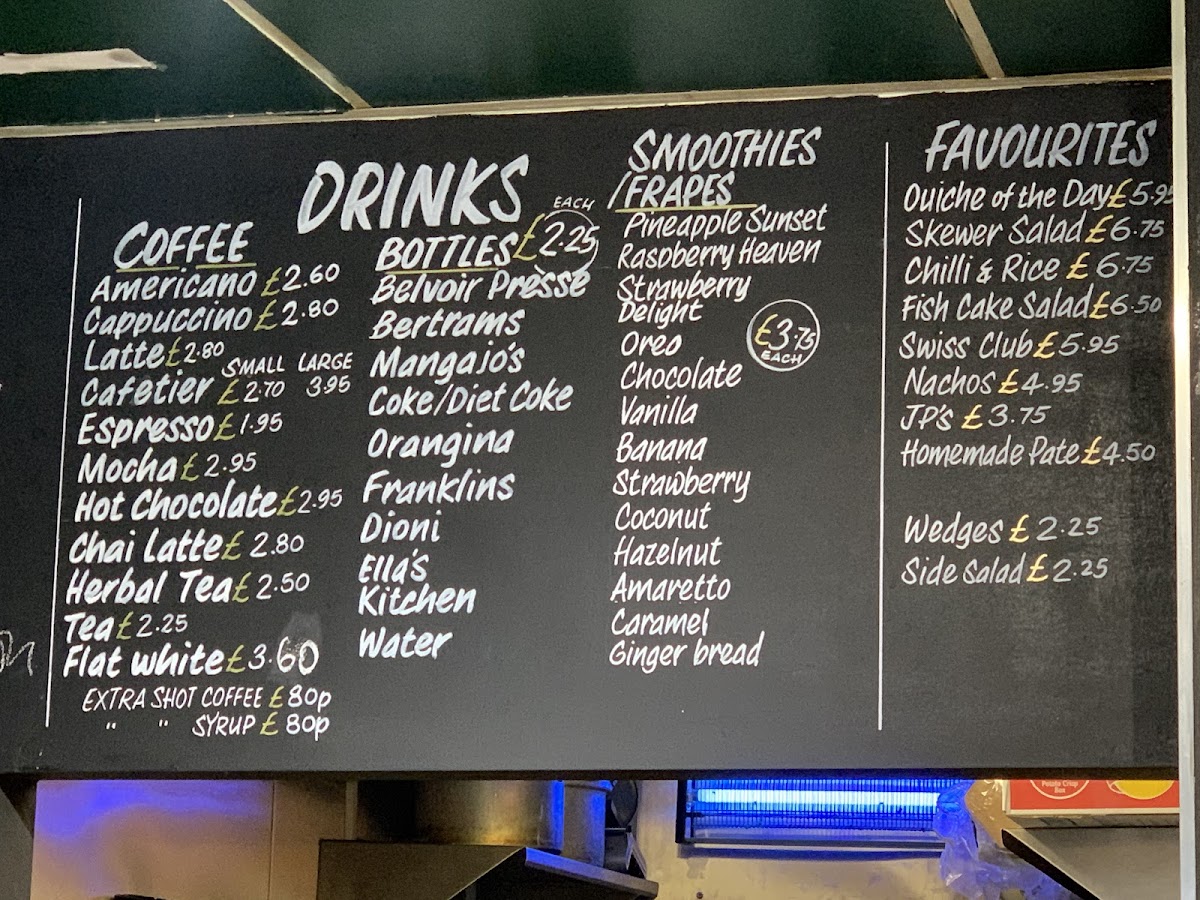 DRINKS
COFFEE
Americano £2.60
Cappuccino £2.80
Latte £2.80
SMALL LARGE
Cafetier £2.70 3.95
Espresso £1.95
Mocha £2.95
Hot Chocolate £2.95
Chai Latte £2.80
Herbal Tea £2.50
Tea £2.25
Flat white £3.60
EXTRA SHOT COFFEE £80p
" " SYRUP £80p
EACH
BOTTLES £2.25
Belvoir Prèsse
Bertrams
Mangajo's
Coke/Diet Coke
Orangina
Franklins
Dioni
Ella's
Kitchen
Water
SMOOTHIES
/FRAPES
Pineapple Sunset
Raspberry Heaven
Strawberry
Delight
Oreo
Chocolate
Vanilla
Banana
Strawberry
Coconut
Hazelnut
Amaretto
Caramel
Ginger bread
£3.75
EACH
FAVOURITES
Quiche of the Day £5.95
Skewer Salad £6.75
Chilli & Rice £6.75
Fish Cake Salad £6.50
Swiss Club £5.95
Nachos £4.95
JP's £3.75
Homemade Pate £4.50
Wedges £2.25
Side Salad £2.25
Potato Crisp
Box